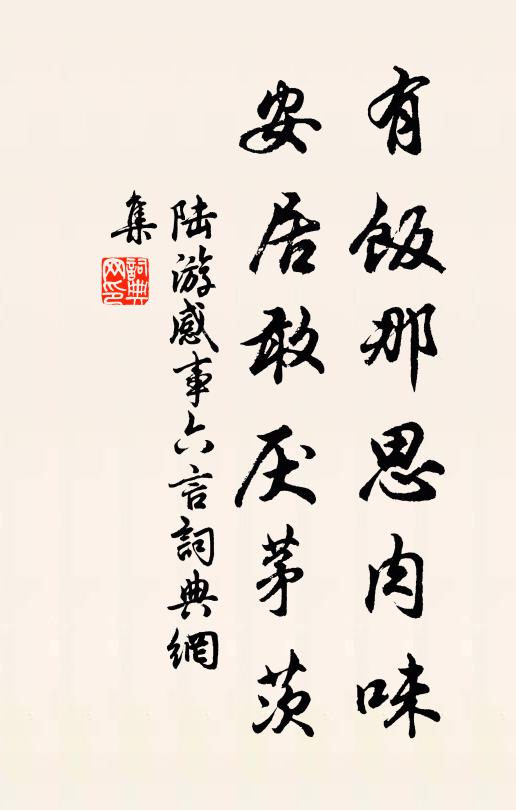 有飯那思肉味
安居敢厌茅茨
陆游感事六言詞典網
集
詞典
网印